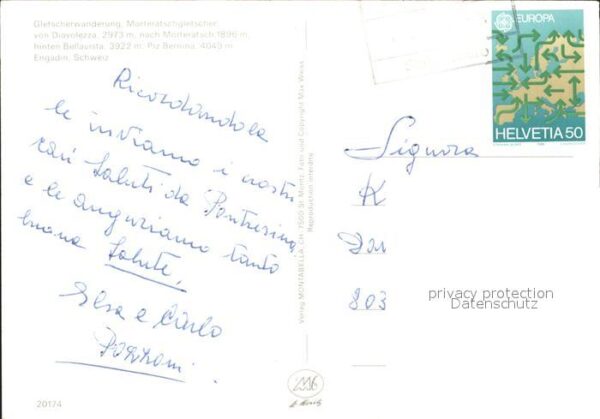 Gletscherwanderung, Morteratschgletscher
von Diavolezza, 2973 m, nach Morteratsch 1896 m,
hinten Bellavista, 3922 m, Piz Bernina, 4049 m
Engadin, Schweiz
Ricordandola
le inviamo i nostri
cari saluti da Pontresina
e le auguriamo tanta
buona salute,
Elsa e Carlo
20174
Verlag MONTABELLA, CH-7500 St. Moritz, Foto und Copyright Max Weiss
Reproduction interdite
EUROPA
HELVETIA 50
Signora
K
803
privacy protection
Datenschutz